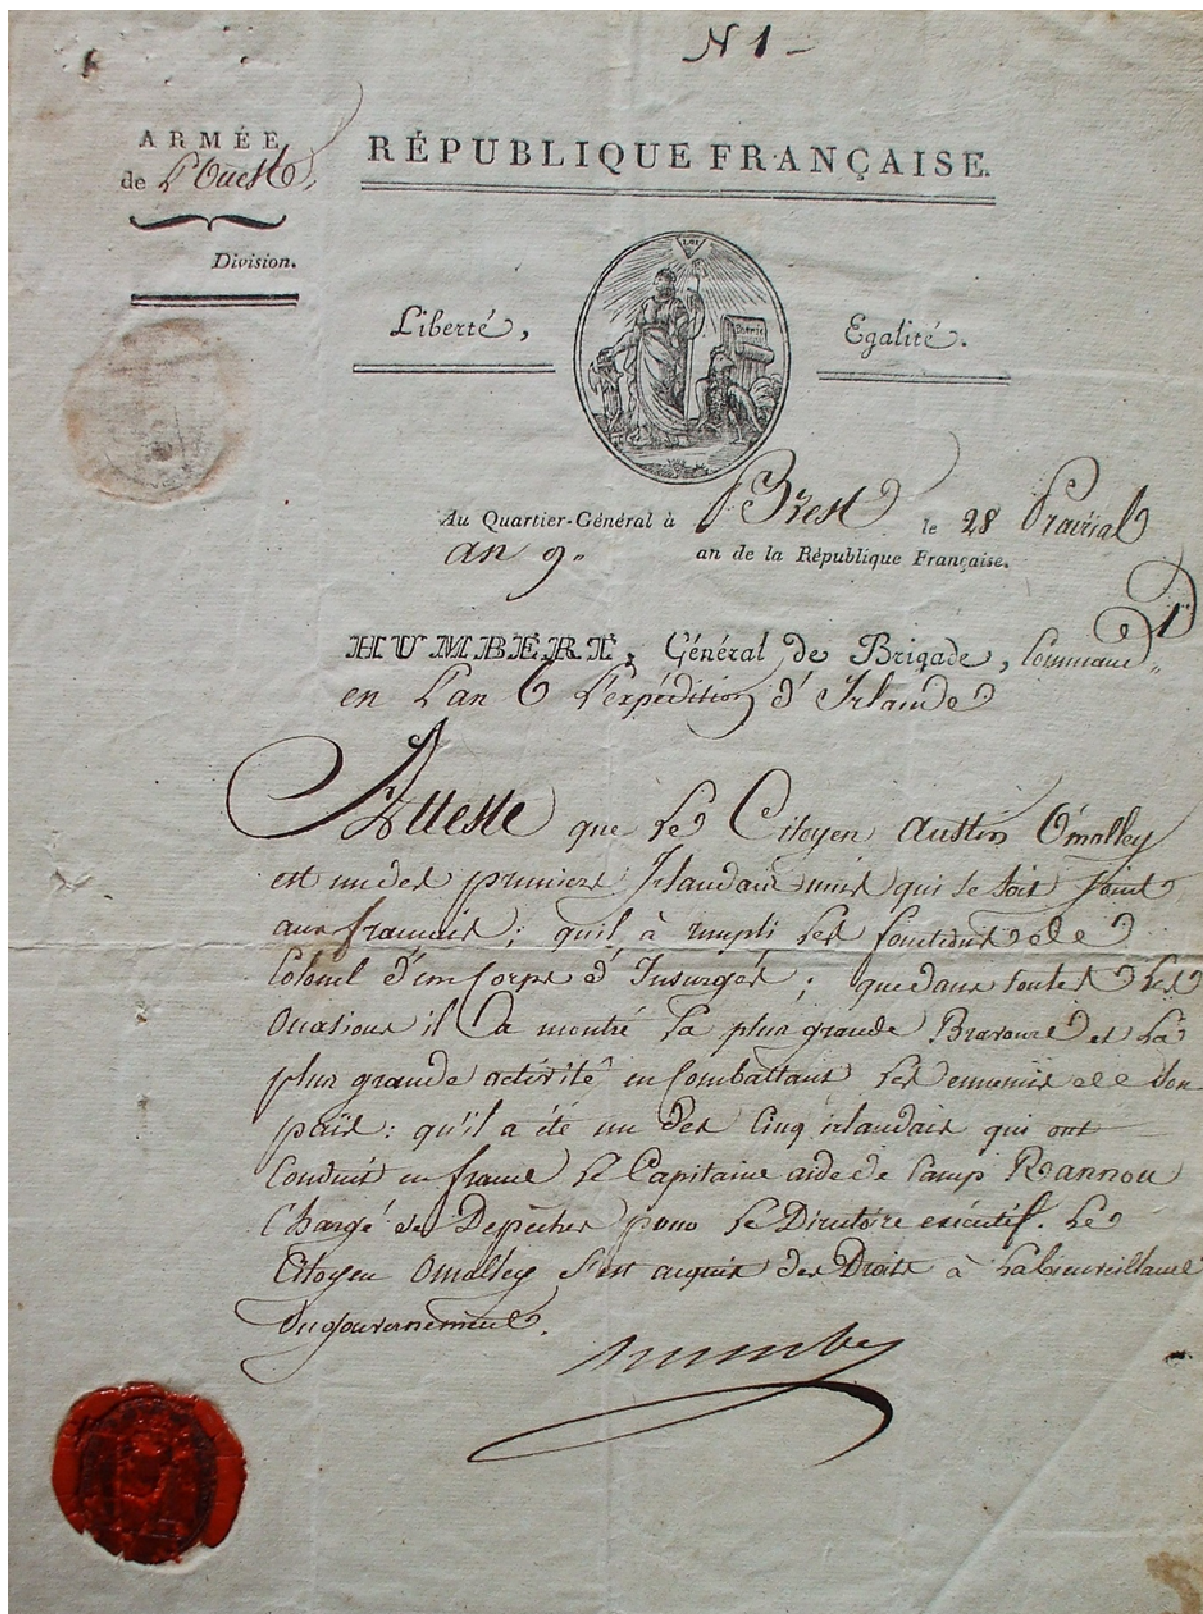 N 1 -
ARMÉE
de L'Ouest
RÉPUBLIQUE FRANÇAISE.
Division.
Liberté,
Egalité.
Patrie
Au Quartier-Général à Brest le 28 Prairial
an 9.. an de la République Française.
HUMBERT, Général de Brigade, Command.t
en L'an 6 L'expédition d'Irlande
Atteste que Le Citoyen Austin O'malley
est un des premiers Irlandais unis qui se soit joint
aux français; qu'il à rempli Les fonctions de
Colonel d'un Corps d'Insurgés; que dans toutes Les
Occasions il a montré La plus grande Bravoure et La
plus grande activité en Combattant Les ennemis de son
païs: qu'il a été un des Cinq irlandais qui ont
Conduit en france Le Capitaine aide de Camp
Chargé de Depêches pour Le Directoire exécutif. Le
Citoyen Omalley s'est acquis des Droits à La bienveillance
du gouvernement.
Humbert